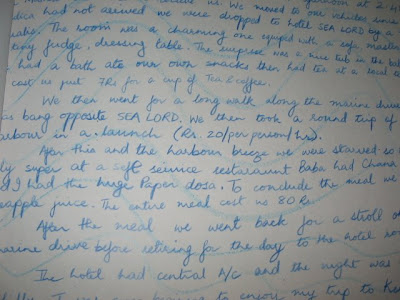 us. We moved to our vehicles since
dica had not arrived we were dropped to hotel SEA LORD by a
The room was a charming one equiped with a sofa, master
tiny fudge, dressing table. The surprise was a nice tub in the bath
had a bath ate our own snacks then had tea at a local
cost us just 7Rs for a cup of Tea & coffee.
We then went for a long walk along the marine drive
as bang opposite SEA LORD. We then took a round trip of
arbour in a launch (Rs. 20/per person/hr).
After this and the harbour breeze we were starved so
ly super at a self service restaraunt Baba had Chana
I had the huge Paper dosa. To conclude the meal we
eapple juice. The entire meal cost us 80 Rs.
After the meal we went back for a stroll o
marine drive before retiring for the day to the hotel
The hotel had central A/c and the night was
to enjoy my trip to